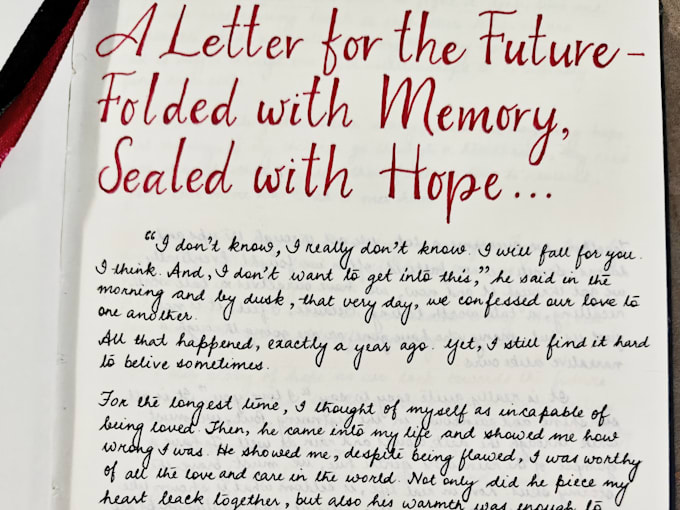 A Letter for the Future -
Folded with Memory,
Sealed with Hope...
"I don't know, I really don't know. I will fall for you.
I think. And, I don't want to get into this," he said in the
morning and by dusk, that very day, we confessed our love to
one another.
All that happened, exactly a year ago. Yet, I still find it hard
to belive sometimes.
For the longest time, I thought of myself as incapable of
being loved. Then, he came into my life and showed me how
wrong I was. He showed me, despite being flawed, I was worthy
of all the love and care in the world. Not only did he piece my
heart back together, but also his warmth was enough to